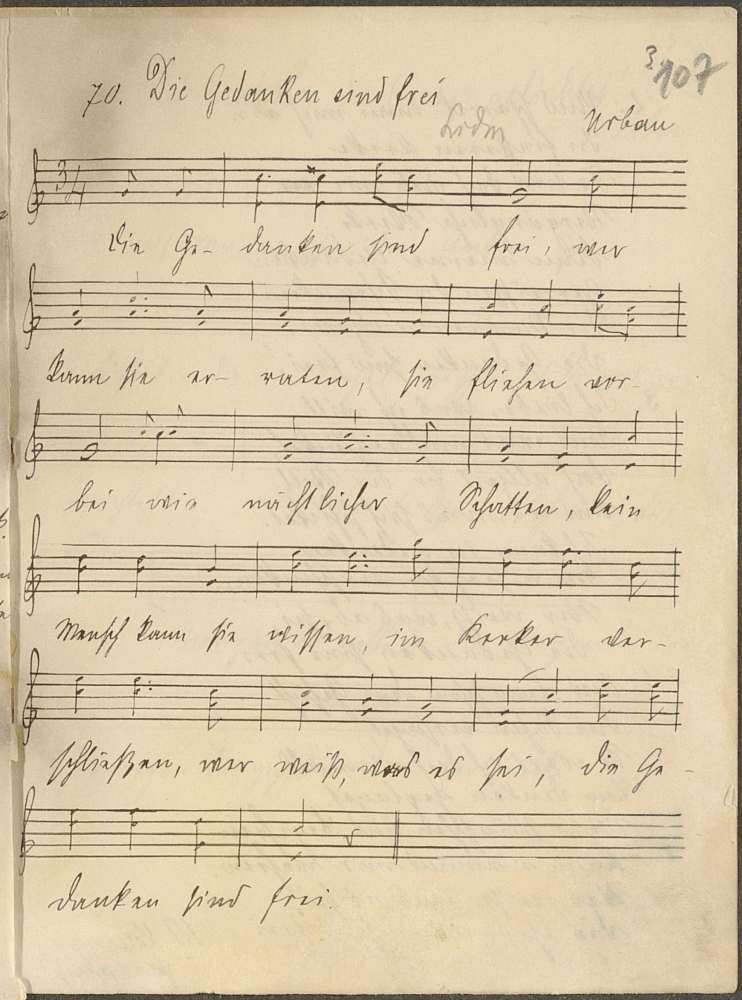 3
107
70. Die Gedanken sind frei
Urban
3/4
Die Ge- danken sind frei, wer
kann sie er- raten, sie fliehen vor-
bei wie nächtlicher Schatten, kein
Mensch kann sie wissen, im Kerker ver-
schließen, wer weiß, was es sei, die Ge-
danken sind frei.